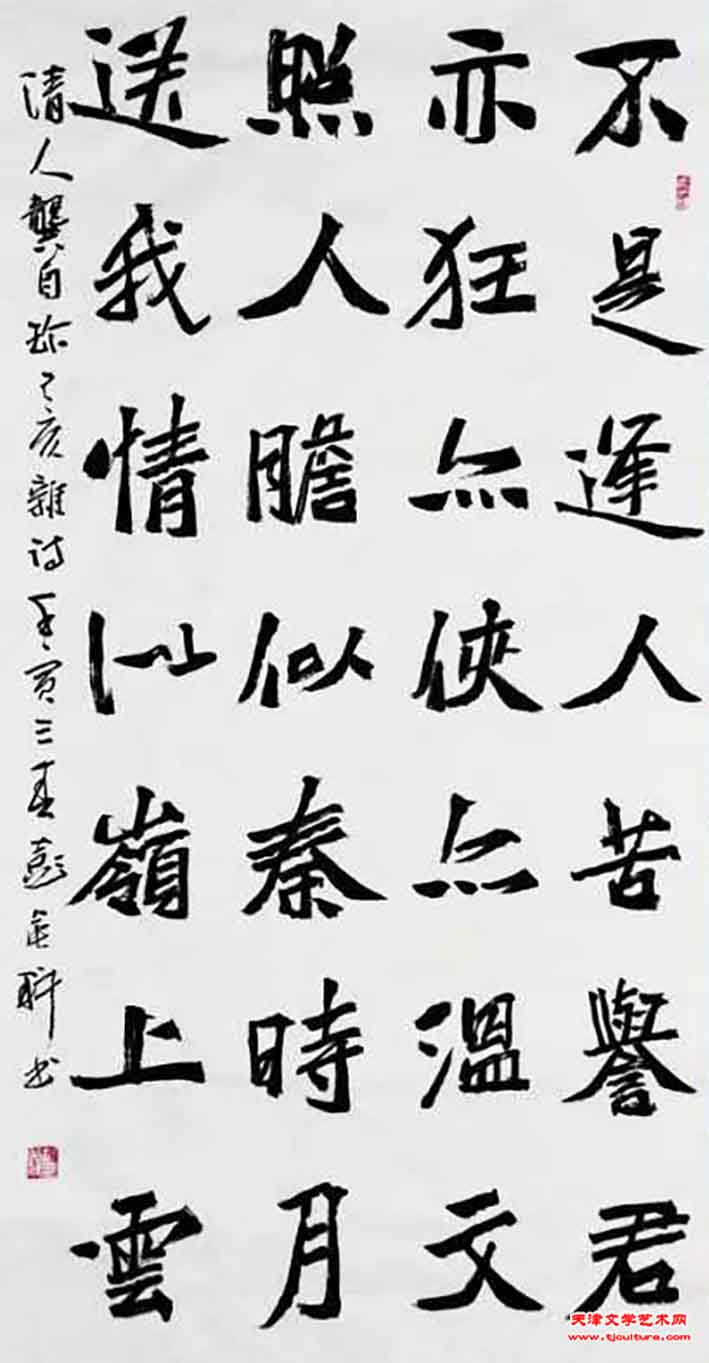 不是逢人苦譽君
亦狂亦俠亦溫文
照人膽似秦時月
送我情似嶺上雲
清人龔自珍己亥雜詩壬寅三春彭书
天津文学艺术网
www.tjculture.com